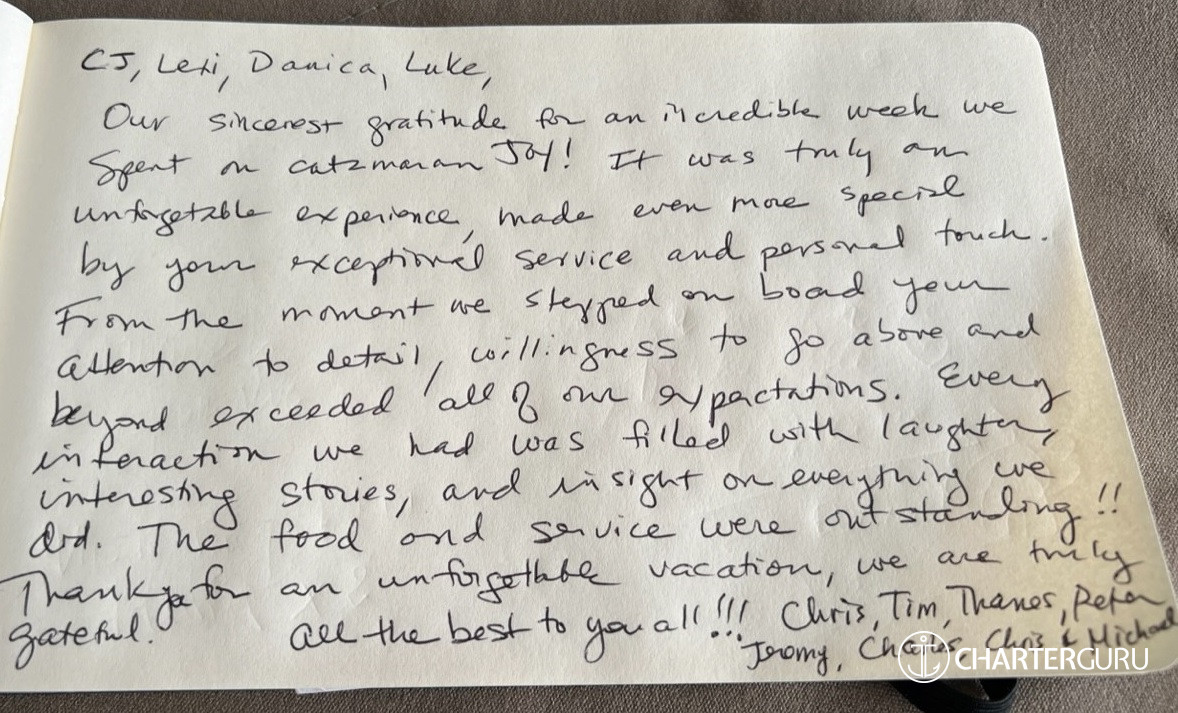 CJ, Lexi, Danica, Luke,
Our sincerest gratitude for an incredible week we
spent on catamaran Joy! It was truly an
unforgetable experience, made even more special
by your exceptional service and personal touch.
From the moment we stepped on board your
attention to detail, willingness to go above and
beyond exceeded all of our expectations. Every
interaction we had was filled with laughter,
interesting stories, and insight on everything we
did. The food and service were outstanding!!
Thank you for an unforgettable vacation, we are truly
grateful. All the best to you all!!! Chris, Tim, Thanos, Peter
Jeromy, Charles, Chris & Michael
CHARTERGURU